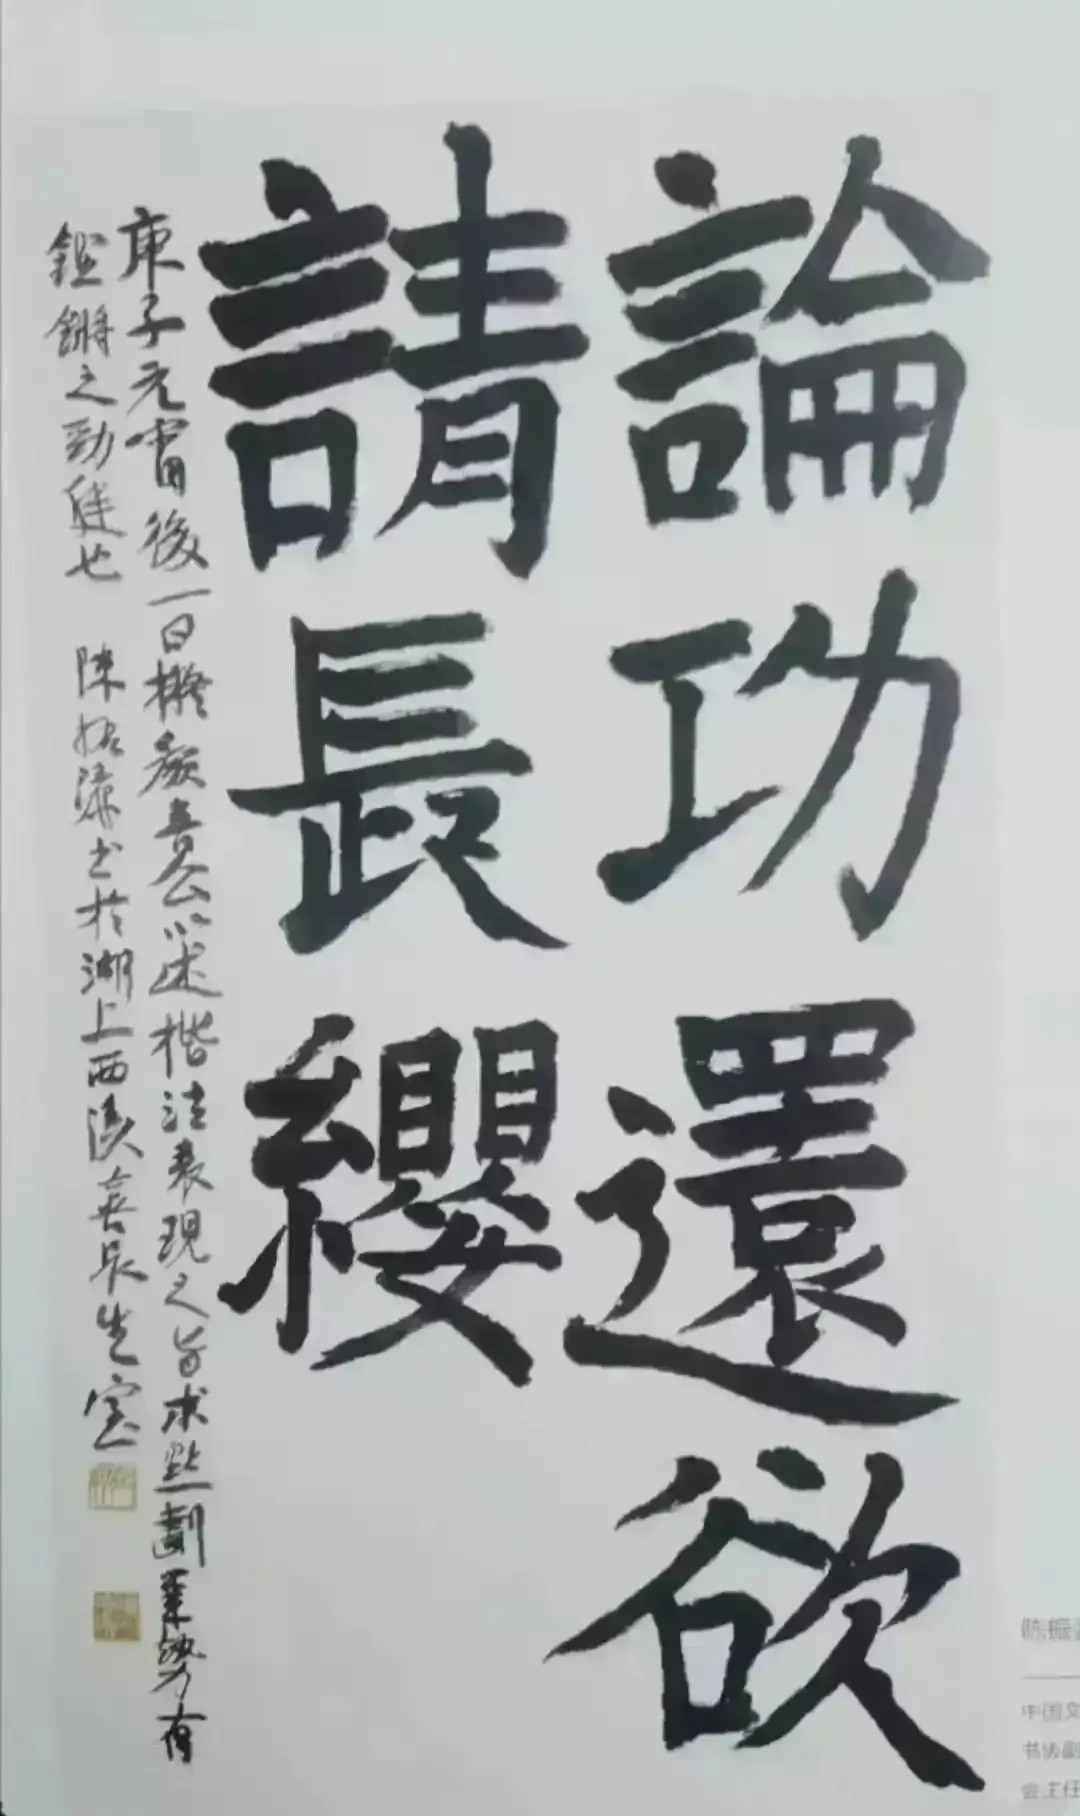 論功還欲
請長纓
庚子元宵後一日擬顏魯公以述楷法表現之旨求點劃筆勢有
鏗鏘之勁健也 陳振濂書於湖上西溪喜長生室
陈振
中国文
书协副
会主任